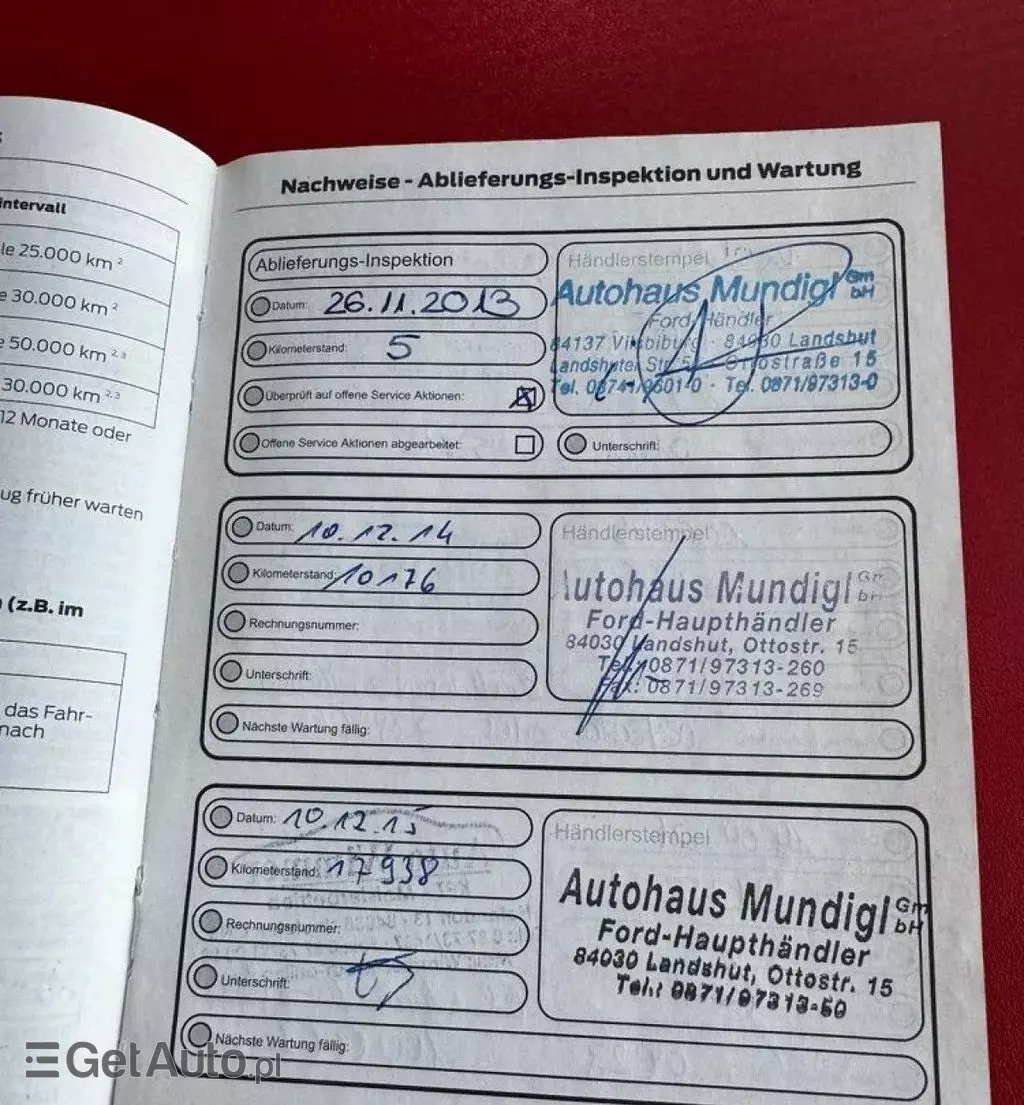 intervall
le 25.000 km ²
e 30.000 km ²
e 50.000 km ²,³
30.000 km ²,³
12 Monate oder
ug früher warten
(z.B. im
das Fahr-
nach
Nachweise - Ablieferungs-Inspektion und Wartung
Ablieferungs-Inspektion
Datum: 26.11.2013
Kilometerstand: 5
Überprüft auf offene Service Aktionen:
Offene Service Aktionen abgearbeitet:
Händlerstempel
Autohaus Mundigl GmbH
Ford-Händler
84137 Vilsbiburg · 84030 Landshut
Landshuter Str. Ottostraße 15
Tel. 08741/9601-0 · Tel. 0871/97313-0
Unterschrift:
Datum: 10.12.14
Kilometerstand: 10176
Rechnungsnummer:
Unterschrift:
Nächste Wartung fällig:
Händlerstempel
Autohaus Mundigl GmbH
Ford-Haupthändler
84030 Landshut, Ottostr. 15
Tel.: 0871/97313-260
Fax: 0871/97313-269
Datum: 10.12.15
Kilometerstand: 17938
Rechnungsnummer:
Unterschrift:
Nächste Wartung fällig:
Händlerstempel
Autohaus Mundigl GmbH
Ford-Haupthändler
84030 Landshut, Ottostr. 15
Tel.: 0871/97313-50
GetAuto.pl